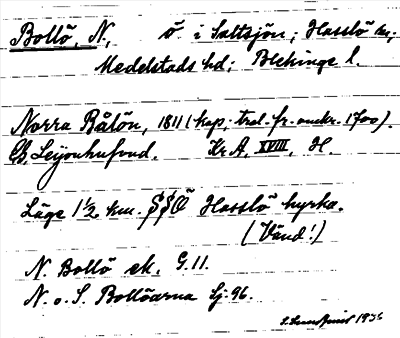 Bollö, N, ö i Saltsjön; Hasslö sn;
Medelstads hd; Blekinge l.
Norra Bålön, 1811 (kap; trol. fr. omkr. 1700).
CB. Leijonhufvud. Kr. A. XVIII, H.
Läge 1 1/2 km. SSÖ Hasslö kyrka.
(Vänd!)
N. Bollö ek. G. 11.
N. o. S. Bollöarna Sj. 96.
1936